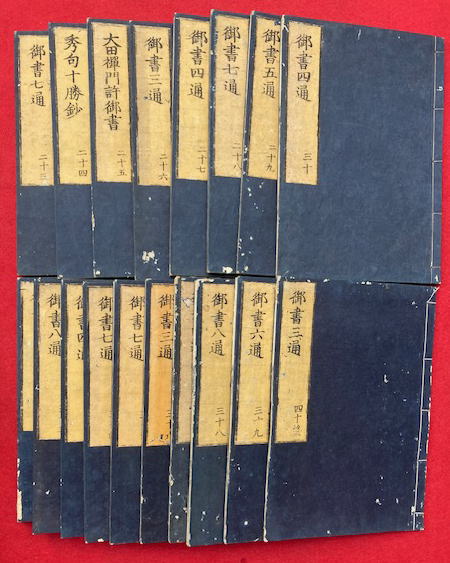 御書七通
二十三
秀句十勝鈔
二十四
大田禪門許御書
二十五
御書三通
二十六
御書四通
二十七
御書七通
二十八
御書五通
二十九
御書四通
三十
御書八通
御書四通
御書七通
御書七通
御書三通
御書八通
三十八
御書六通
三十九
御書三通
四十終